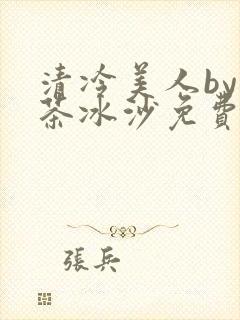 清冷美人by
茶冰沙免費
張兵